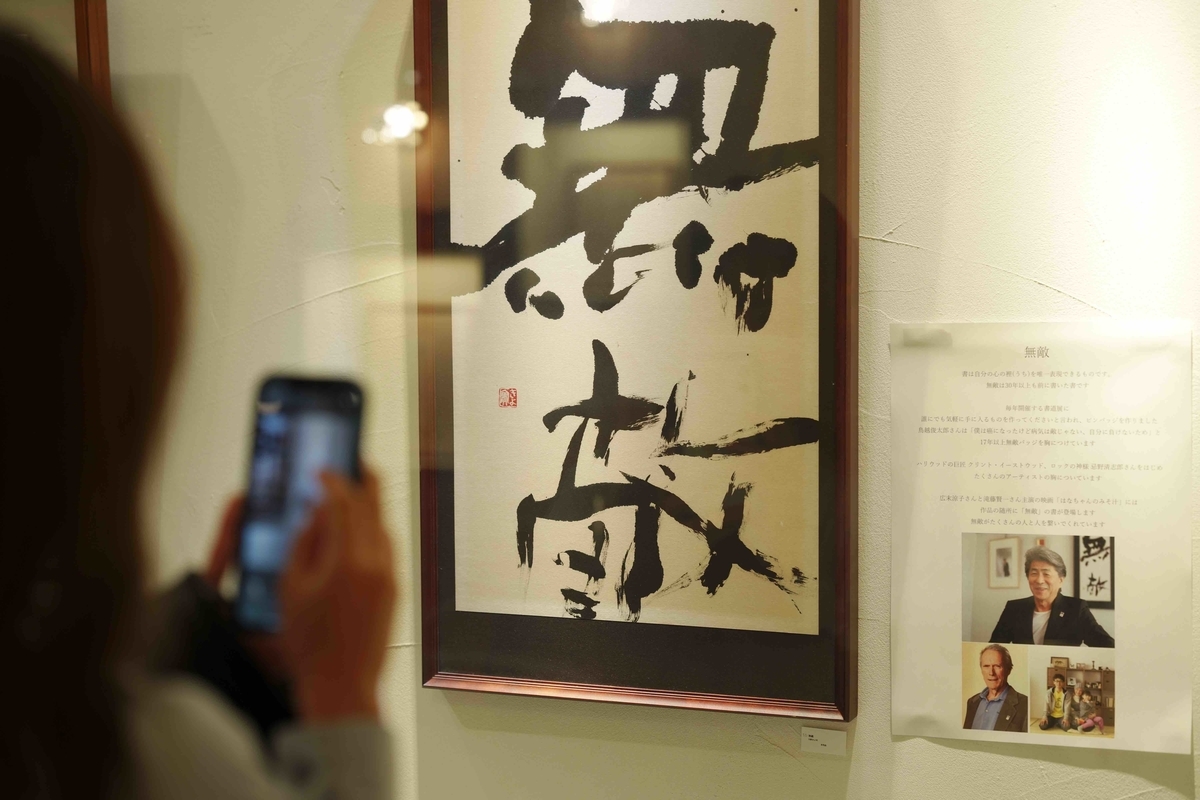 無
敵
無敵
書は自分の心の裡(うち)を唯一表現できるものです。
無敵は30年以上も前に書いた書です
毎年開催する書道展に
誰にでも気軽に手に入るものを作ってくださいと言われ、ピンバッジを作りました
鳥越俊太郎さんは「僕は癌になったけど病気は敵じゃない、自分に負けないため」と
17年以上無敵バッジを胸につけています
ハリウッドの巨匠 クリント・イーストウッド、ロックの神様 忌野清志郎さんをはじめ
たくさんのアーティストの胸についています
広末涼子さんと滝藤賢一さん主演の映画「はなちゃんのみそ汁」には
作品の随所に「無敵」の書が登場します
無敵がたくさんの人と人を繋いでくれています
無
敵